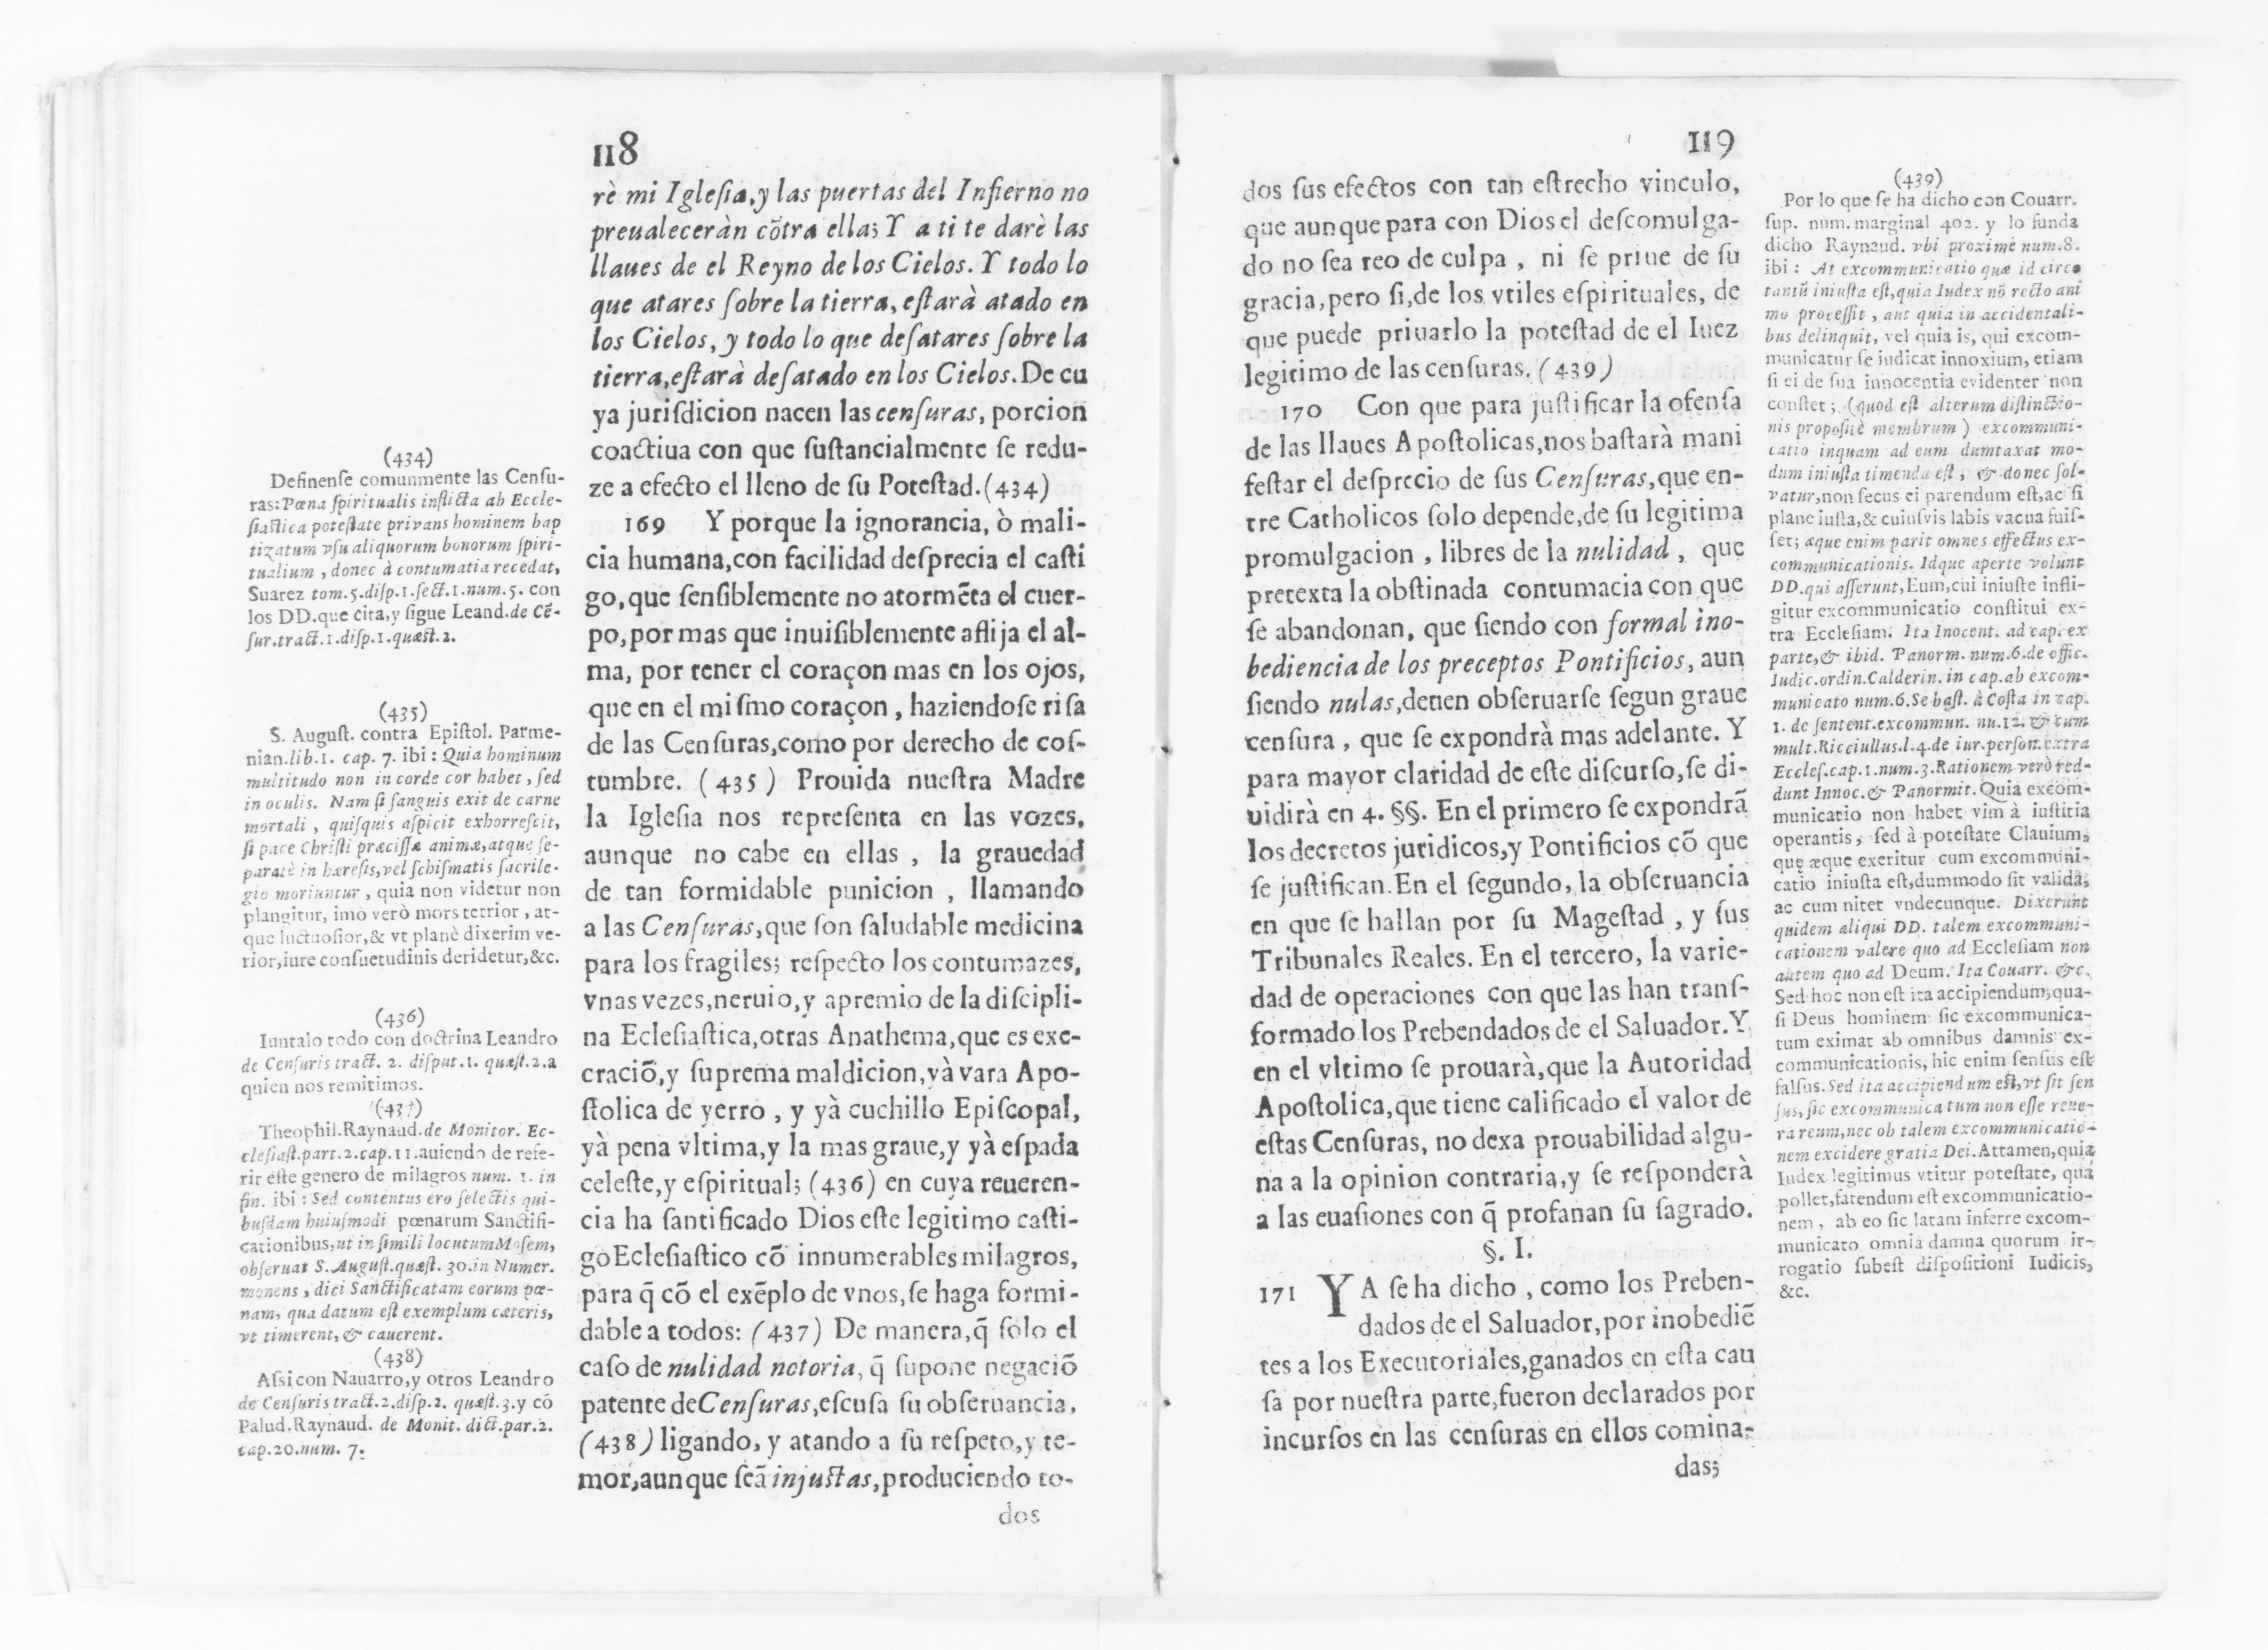 118
rè mi Igleſia,y las puertas del Infierno no
preualeceràn cõtra ella; Y a ti te darè las
llaues de el Reyno de los Cielos. Y todo lo
que atares ſobre la tierra, eſtarà atado en
los Cielos, y todo lo que deſatares ſobre la
tierra,eſtarà deſatado en los Cielos. De cu
ya juriſdicion nacen las cenſuras, porcion
coactiua con que ſuſtancialmente ſe redu-
ze a efecto el lleno de ſu Poteſtad.(434)
169 Y porque la ignorancia, ò mali-
cia humana,con facilidad deſprecia el caſti
go,que ſenſiblemente no atormẽta el cuer-
po,por mas que inuiſiblemente aflija el al-
ma, por tener el coraçon mas en los ojos,
que en el miſmo coraçon , haziendoſe riſa
de las Cenſuras,como por derecho de coſ-
tumbre. (435) Prouida nueſtra Madre
la Igleſia nos repreſenta en las vozes,
aunque no cabe en ellas , la grauedad
de tan formidable punicion , llamando
a las Cenſuras,que ſon ſaludable medicina
para los fragiles; reſpecto los contumazes,
vnas vezes,neruio,y apremio de la diſcipli-
na Ecleſiaſtica,otras Anathema,que es exe-
craciõ,y ſuprema maldicion,yà vara Apo-
ſtolica de yerro , y yà cuchillo Epiſcopal,
yà pena vltima,y la mas graue,y yà eſpada
celeſte,y eſpiritual; (436) en cuya reueren-
cia ha ſantificado Dios eſte legitimo caſti-
go Ecleſiaſtico cõ innumerables milagros,
para q̃ cõ el exẽplo de vnos,ſe haga formi-
dable a todos: (437) De manera,q̃ ſolo el
caſo de nulidad notoria, q̃ ſupone negaciõ
patente de Cenſuras,eſcuſa ſu obſeruancia,
(438) ligando, y atando a ſu reſpeto,y te-
mor,aunque ſeã injuſtas,produciendo to-
dos
(434)
Definenſe comunmente las Cenſu-
ras: Pœna ſpiritualis inflicta ab Eccle-
ſiaſtica poteſtate privans hominem bap
tizatum vſu aliquorum bonorum ſpiri-
tualium , donec à contumatia recedat,
Suarez tom.5.diſp.1.ſect.1.num.5. con
los DD.que cita,y ſigue Leand.de Cẽ-
ſur.tract.1.diſp.1.quæſt.2.
(435)
S. Auguſt. contra Epiſtol. Parme-
nian.lib.1. cap. 7. ibi : Quia hominum
multitudo non in corde cor habet , ſed
in oculis. Nam ſi ſanguis exit de carne
mortali , quiſquis aſpicit exhorreſcit,
ſi pace Chriſti præciſſæ animæ,atque ſe-
paratè in hæreſis,vel ſchiſmatis ſacrile-
gio moriuntur , quia non videtur non
plangitur, imò verò mors tetrior , at-
que luctuoſior,& vt planè dixerim ve-
rior,iure conſuetudinis deridetur,&c.
(436)
Iuntalo todo con doctrina Leandro
de Cenſuris tract. 2. diſput.1. quæſt.2.a
quien nos remitimos.
(437)
Theophil.Raynaud.de Monitor. Ec-
cleſiaſt.part.2.cap.11.auiendo de refe-
rir eſte genero de milagros num. 1. in
fin. ibi : Sed contentus ero ſelectis qui-
buſdam huiuſmodi pœnarum Sanctifi-
cationibus,ut in ſimili locutum Moſem,
obſeruat S. Auguſt.quæſt. 30.in Numer.
monens , dici Sanctificatam eorum pœ-
nam, qua datum eſt exemplum cæteris,
vt timerent, & cauerent.
(438)
Aſsi con Nauarro,y otros Leandro
de Cenſuris tract.2.diſp.2. quæſt.3.y cõ
Palud.Raynaud. de Monit. dict.par.2.
cap.20.num. 7.
119
dos ſus efectos con tan eſtrecho vinculo,
que aunque para con Dios el deſcomulga-
do no ſea reo de culpa , ni ſe priue de ſu
gracia,pero ſi,de los vtiles eſpirituales, de
que puede priuarlo la poteſtad de el Iuez
legitimo de las cenſuras. (439)
170 Con que para juſtificar la ofenſa
de las llaues Apoſtolicas,nos baſtarà mani
feſtar el deſprecio de ſus Cenſuras,que en-
tre Catholicos ſolo depende,de ſu legitima
promulgacion , libres de la nulidad , que
pretexta la obſtinada contumacia con que
ſe abandonan, que ſiendo con formal ino-
bediencia de los preceptos Pontificios, aun
ſiendo nulas,deuen obſeruarſe ſegun graue
cenſura , que ſe expondrà mas adelante. Y
para mayor claridad de eſte diſcurſo,ſe di-
uidirà en 4. §§. En el primero ſe expondrã
los decretos juridicos,y Pontificios cõ que
ſe juſtifican. En el ſegundo, la obſeruancia
en que ſe hallan por ſu Mageſtad , y ſus
Tribunales Reales. En el tercero, la varie-
dad de operaciones con que las han tranſ-
formado los Prebendados de el Saluador. Y
en el vltimo ſe prouarà,que la Autoridad
Apoſtolica,que tiene calificado el valor de
eſtas Cenſuras, no dexa prouabilidad algu-
na a la opinion contraria,y ſe reſponderà
a las euaſiones con q̃ profanan ſu ſagrado.
§. I.
171 YA ſe ha dicho , como los Preben-
dados de el Saluador,por inobediẽ
tes a los Executoriales,ganados en eſta cau
ſa por nueſtra parte,fueron declarados por
incurſos en las cenſuras en ellos comina-
das;
(439)
Por lo que ſe ha dicho con Couarr.
ſup. num. marginal 402. y lo funda
dicho Raynaud. vbi proximè num.8.
ibi : At excommunicatio quæ id circo
tantũ iniuſta eſt,quia Iudex nõ recto ani
mo proceſſit , aut quia in accidentali-
bus delinquit, vel quia is, qui excom-
municatur ſe iudicat innoxium, etiam
ſi ei de ſua innocentia evidenter non
conſtet ; (quod eſt alterum diſtinctio-
nis propoſitè membrum ) excommuni-
catio inquam ad eum dumtaxat mo-
dum iniuſta timenda eſt , & donec ſol-
vatur,non ſecus ei parendum eſt,ac ſi
plane iuſta,& cuiuſvis labis vacua fuiſ-
ſet; æque enim parit omnes effectus ex-
communicationis. Idque aperte volunt
DD.qui aſſerunt, Eum,cui iniuſte infli-
gitur excommunicatio conſtitui ex-
tra Eccleſiam. Ita Inocent. ad cap. ex
parte,& ibid. Panorm. num.6.de offic.
Iudic.ordin.Calderin. in cap.ab excom-
municato num.6.Sebaſt. à Coſta in cap.
1. de ſentent.excommun. nu.12. & cum
mult.Ricciullus.l.4.de iur.perſon.extra
Eccleſ.cap.1.num.3.Rationem verò red-
dunt Innoc.& Panormit. Quia excom-
municatio non habet vim à iuſtitia
operantis, ſed à poteſtate Clauium,
quę æque exeritur cum excommuni-
catio iniuſta eſt,dummodo ſit valida,
ac cum nitet vndecunque. Dixerunt
quidem aliqui DD. talem excommuni-
cationem valere quo ad Eccleſiam non
autem quo ad Deum. Ita Couarr. &c.
Sed hoc non eſt ita accipiendum,qua-
ſi Deus hominem ſic excommunica-
tum eximat ab omnibus damnis ex-
communicationis, hic enim ſenſus eſt
falſus. Sed ita accipiendum eſt,vt ſit ſen
ſus, ſic excommunicatum non eſſe reue-
ra reum,nec ob talem excommunicatio-
nem excidere gratia Dei. Attamen,quia
Iudex legitimus vtitur poteſtate, qua
pollet,fatendum eſt excommunicatio-
nem , ab eo ſic latam inferre excom-
municato omnia damna quorum ir-
rogatio ſubeſt diſpoſitioni Iudicis,
&c.